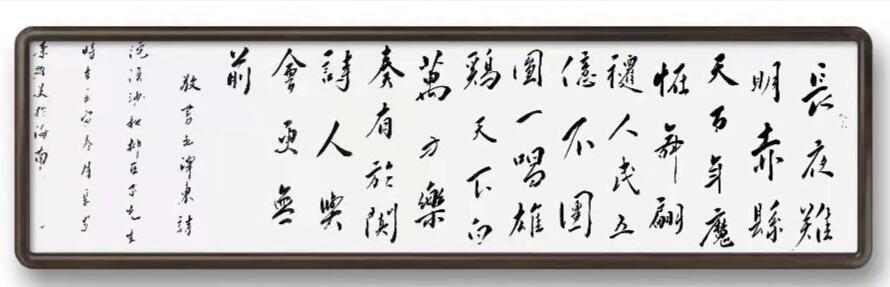 長夜難
明赤縣
天百年魔
恠舞翩
躚人民五
億不團
圓一唱雄
鷄天下白
萬方樂
奏有於闐
詩人興
會更無
前
敬書毛澤東詩
浣溪沙和柳亞子先生
時在壬寅冬月
於海南